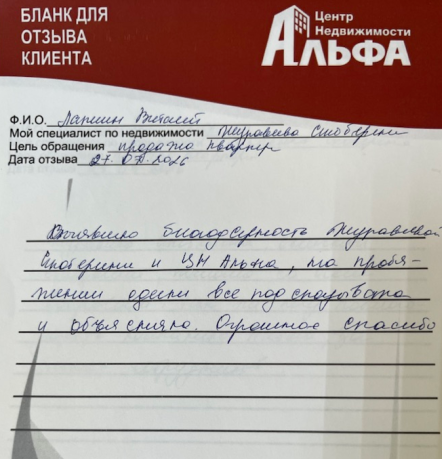 БЛАНК ДЛЯ
ОТЗЫВА
КЛИЕНТА
Центр
Недвижимости
АЛЬФА
Ф.И.О. Лапшин Виталий
Мой специалист по недвижимости Журавлева Екатерина
Цель обращения продажа квартир
Дата отзыва 27.07.2026
благодарность Журавлевой
Екатерине и ЦН Альфа, на протя-
жении сделки все подсказывала
и объясняла. Огромное спасибо